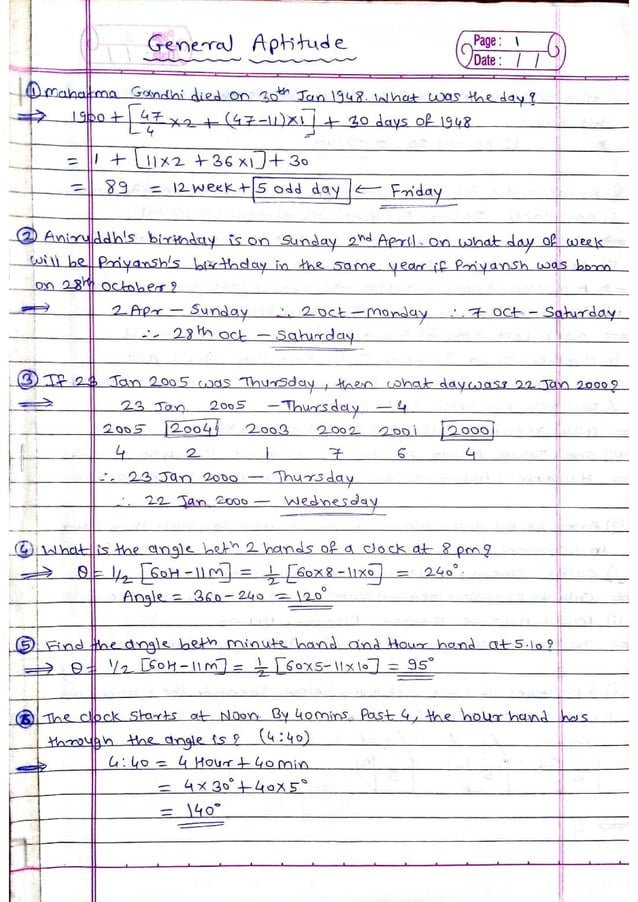 General Aptitude
Page: 1
Date: / /
① Mahatma Gandhi died on 30th Jan 1948. What was the day?
⇒ 1900 + [47/4 x2 + (47-11)x1] + 30 days of 1948
= 1 + [11x2 + 36x1] + 30
= 89 = 12 week + 5 odd day ← Friday
② Aniruddh's birthday is on Sunday 2nd April. on what day of week
will be Priyansh's birthday in the same year if Priyansh was born
on 28th October?
⇒ 2 Apr - Sunday ∴ 2 Oct - Monday ∴ 7 Oct - Saturday
∴ 28th Oct - Saturday
③ If 23 Jan 2005 was Thursday, then what day wass 22 Jan 2000?
⇒ 23 Jan 2005 - Thursday - 4
2005 2004 2003 2002 2001 2000
4 2 1 7 6 4
∴ 23 Jan 2000 - Thursday
∴ 22 Jan 2000 - Wednesday
④ What is the angle beth 2 hands of a clock at 8 pm?
⇒ θ = 1/2 [60H-11M] = 1/2 [60x8-11x0] = 240°.
Angle = 360-240 = 120°
⑤ Find the angle beth minute hand and Hour hand at 5.10?
⇒ θ = 1/2 [60H-11M] = 1/2 [60x5-11x10] = 95°
⑥ The clock starts at Noon. By 40mins. Past 4, the hour hand has
through the angle is? (4:40)
⇒ 4:40 = 4 Hour + 40 min
= 4x30° + 40x5°
= 140°